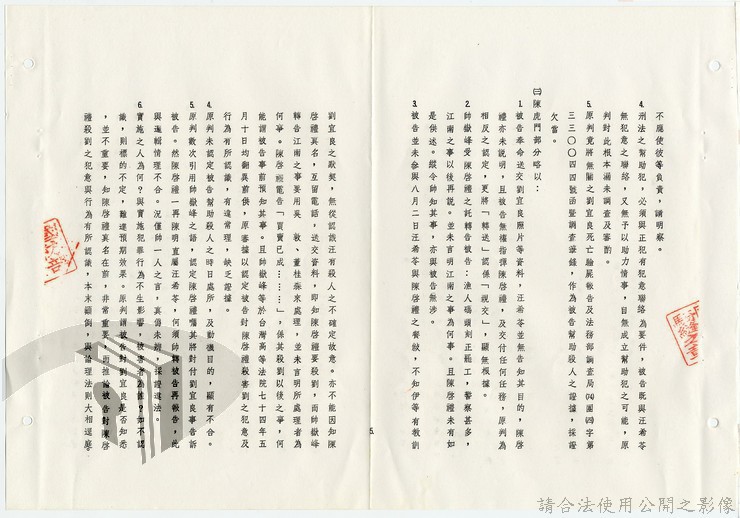 不應使彼等負責，請明察。
4.刑法之幫助犯，必須與正犯有犯意聯絡為要件，被告既與汪希苓
無犯意之聯絡，又無予以助力情事，自無成立幫助犯之可能，原
判對此根本漏未調查及審酌。
5.原判竟將無關之劉宜良死亡驗屍報告及法務部調查局㈣團四字第
三三〇〇四四號函暨調查筆錄，作為被告幫助殺人之證據，採證
欠當。
㈢陳虎門部分略以：
1.被告奉命送交劉宜良照片等資料，汪希苓並無告知其目的，陳啓
禮亦未說明，且被告無權指揮陳啓禮，及交付任何任務，原判為
相反之認定，更將「轉送」認係「親交」，顯無根據。
2.帥嶽峰受陳啓禮之託轉告被告：漁人碼頭刻正罷工，警察甚多，
江南之事以後再說。並未言明江南之事為何事。且陳啓禮未有如
是供述。縱令帥知其事，亦與被告無涉。
3.被告並未參與八月二日汪希苓與陳啓禮之餐敍，不知伊等有教訓
劉宜良之默契，無從認識汪有殺人之不確定故意。亦不能因知陳
啓禮異名，互留電話，送交資料，即知陳啓禮要殺劉，而帥嶽峰
轉告江南之事要用吳　敦、董桂森來處理，並未言明所處理者為
何事。陳啓禮電告「買賣已成………」，係其殺劉以後之事，何
能謂被告事前預知其事。且帥嶽峰等於台灣高等法院七十四年五
月十日均翻異前供，原審據以認定被告對陳啓禮殺害劉之犯意及
行為有所認識，有違常理，缺乏證據。
4.原判未認定被告幫助殺人之時日處所，及動機目的，顯有不合。
5.原判數次引用帥嶽峰之語，認定陳啓禮囑其將對付劉宜良事告訴
被告。然陳啓禮一再陳明直屬汪希苓，何須帥轉被告再報告，此
與邏輯情理不合。況僅帥一人之言，真偽未經，採證違法。
6.實施之人為何？與實施犯罪行為不生影響，被害者為誰？如不認
識，則標的不定，難達預期效果。原判謂被告對劉宜良是否知悉
，並不重要，知陳啓禮異名在前，非常重要，而推論被告對陳啓
禮殺劉之犯意與行為有所認識，本末顛倒，與論理法則大相逕庭
5.
請合法使用公開之影像